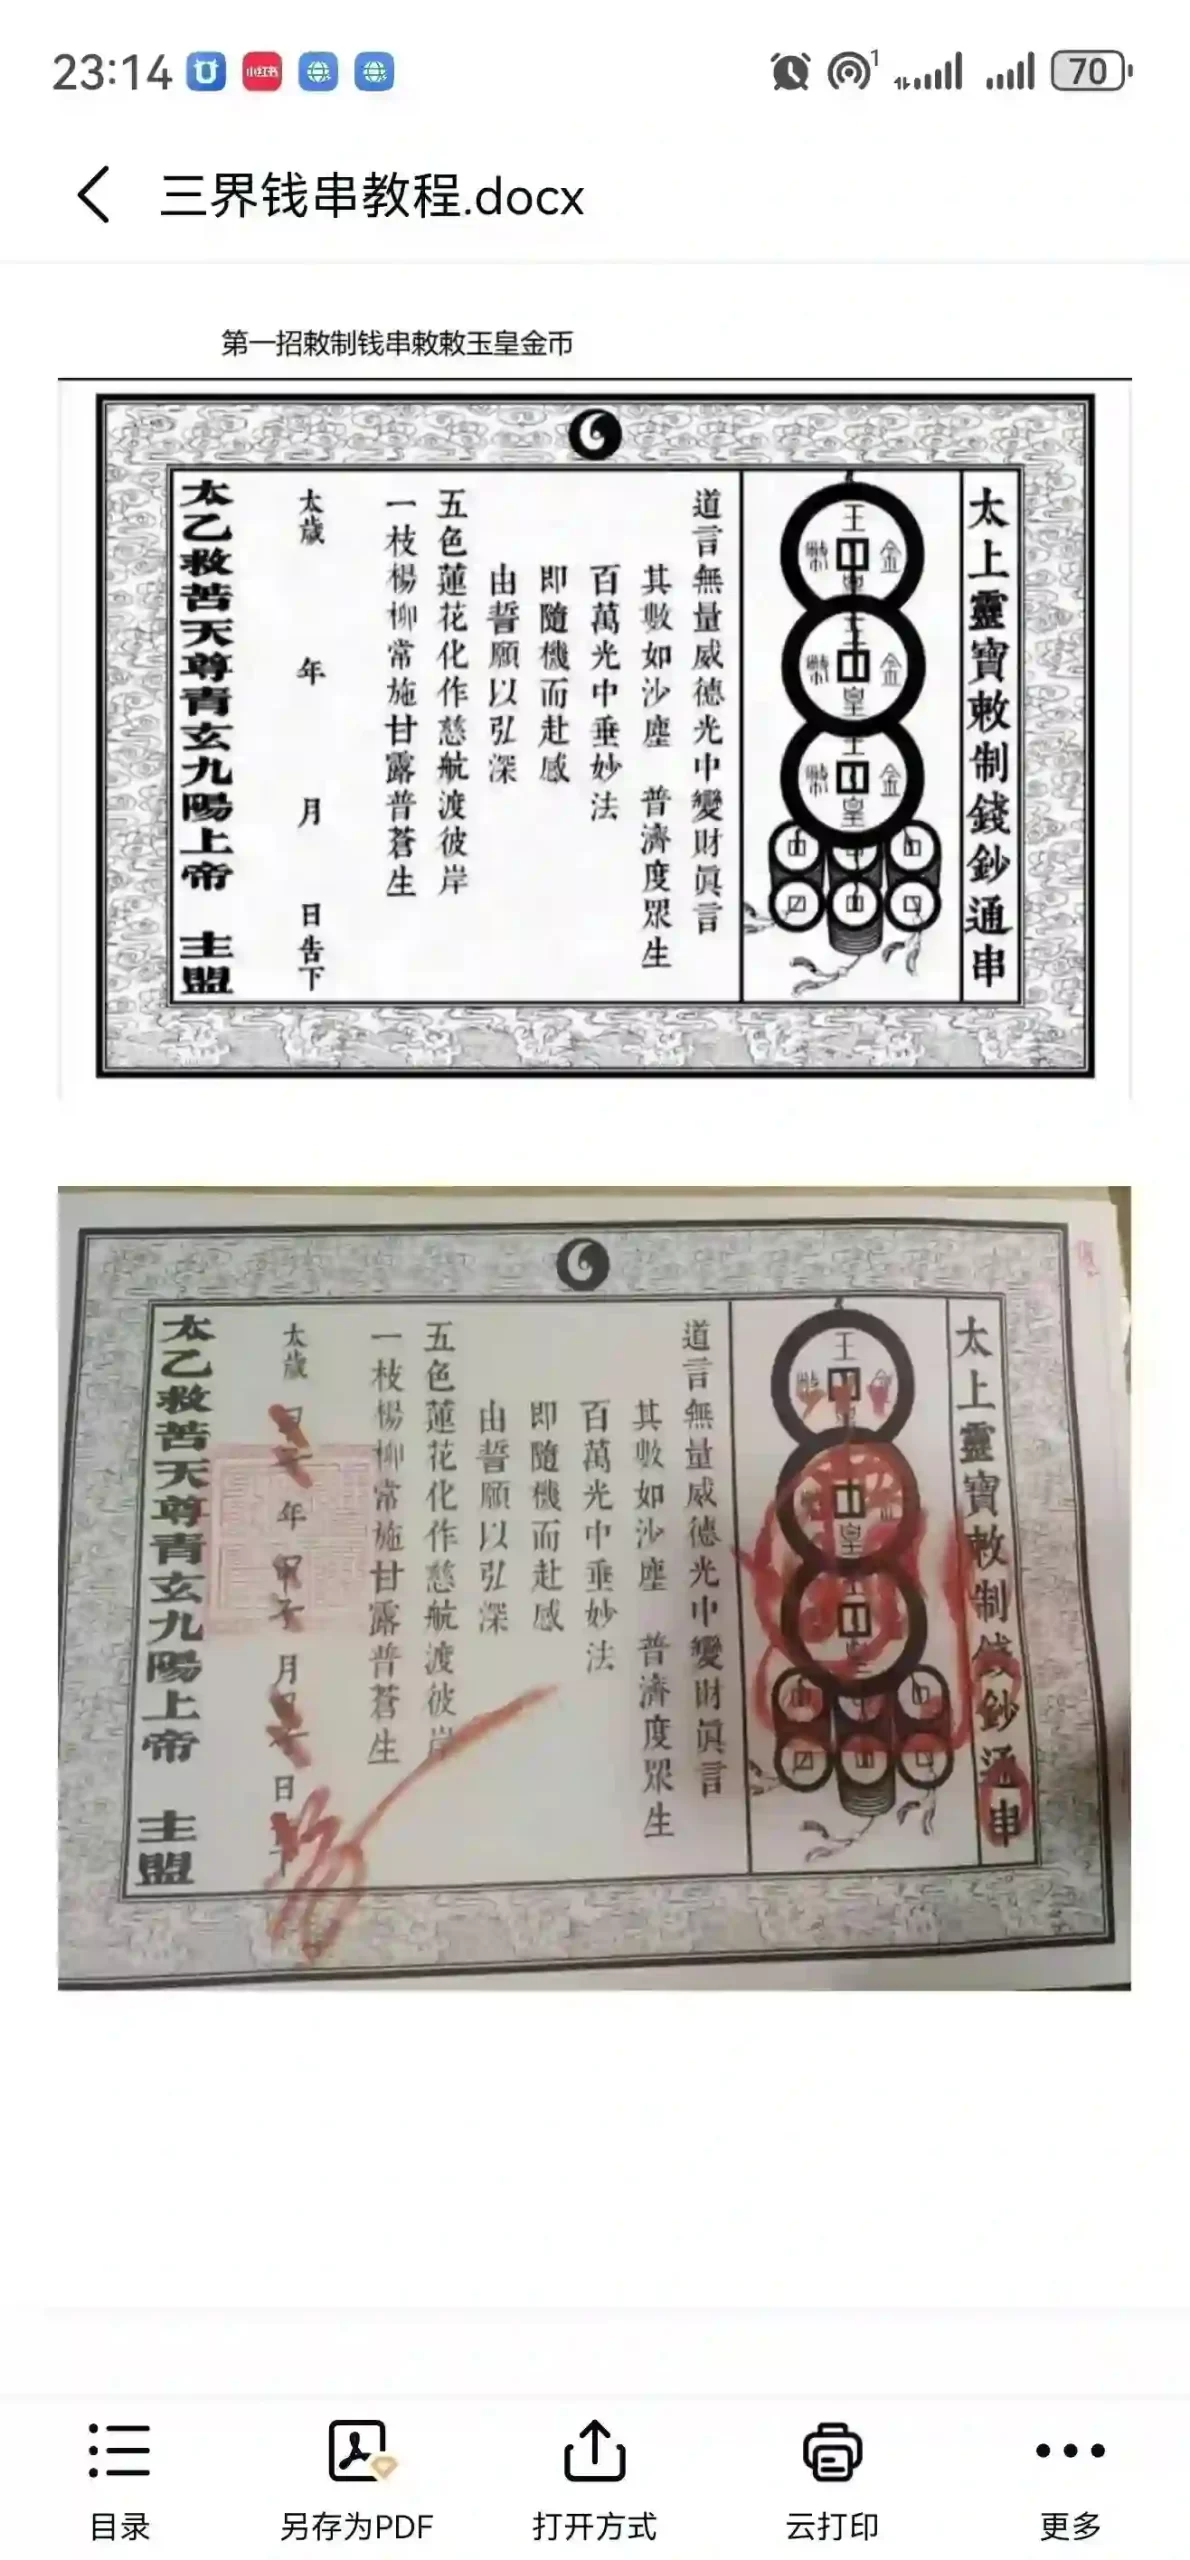 23:14
小红书
1
70
三界钱串教程.docx
第一招敕制钱串敕敕玉皇金币
太上靈寶敕制錢鈔通串
道言無量威德光中變財真言
其數如沙塵 普濟度眾生
百萬光中垂妙法
即隨機而赴感
由誓願以弘深
五色蓮花化作慈航渡彼岸
一枝楊柳常施甘露普蒼生
太歲 年 月 日告下
太乙救苦天尊青玄九陽上帝 主盟
太上靈寶敕制錢鈔通串
道言無量威德光中變財真言
其數如沙塵 普濟度眾生
百萬光中垂妙法
即隨機而赴感
由誓願以弘深
五色蓮花化作慈航渡彼岸
一枝楊柳常施甘露普蒼生
太歲 年 月 日
太乙救苦天尊青玄九陽上帝 主盟
目录
另存为PDF
打开方式
云打印
更多